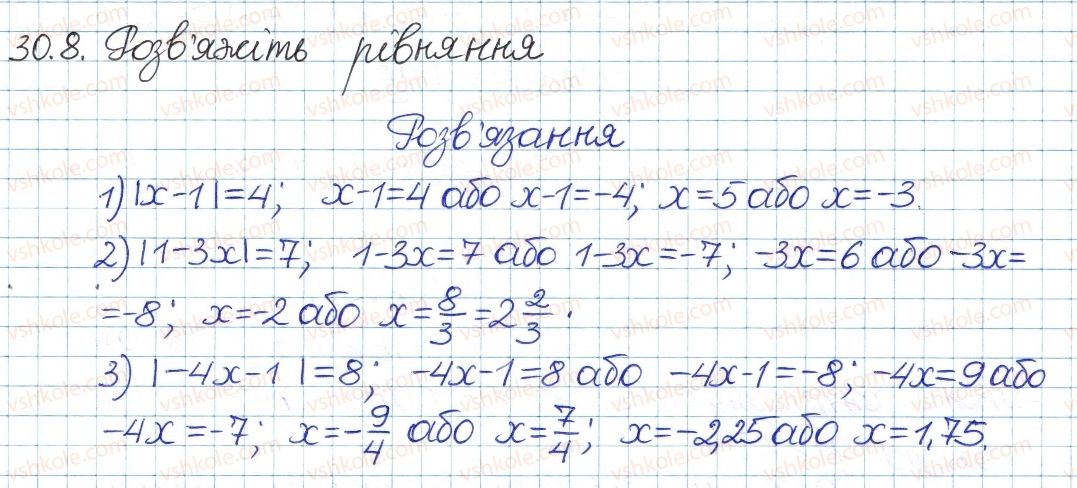 30.8. Розв'яжіть рівняння
Розв'язання
1) |x-1|=4; x-1=4 або x-1=-4; x=5 або x=-3.
2) |1-3x|=7; 1-3x=7 або 1-3x=-7; -3x=6 або -3x=
=-8; x=-2 або x=8/3=2 2/3.
3) |-4x-1|=8; -4x-1=8 або -4x-1=-8; -4x=9 або
-4x=-7; x=-9/4 або x=7/4; x=-2,25 або x=1,75.